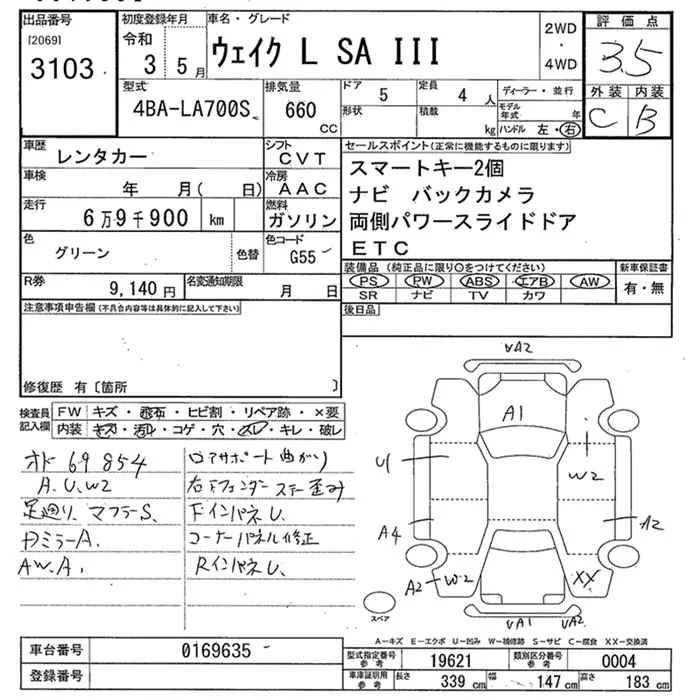 出品番号
[2069]
3103
初度登録年月
令和
3 5月
車名・グレード
ウェイク L SA III
2WD
・
4WD
評価点
3.5
型式
4BA-LA700S
排気量
660
CC
ドア
5
定員
4 人
形状
積載
kg
ディーラー・並行
モデル年式 年
ハンドル 左・右
外装 内装
C B
車歴
レンタカー
シフト
CVT
車検
年 月( 日)
冷房
AAC
走行
6万9千900 km
燃料
ガソリン
色
グリーン
色替
色コード
G55
R券
9,140 円
名変通知期限
月 日
セールスポイント(正常に機能するものに限ります)
スマートキー2個
ナビ バックカメラ
両側パワースライドドア
ETC
装備品 (純正品に限り○をつけてください)
新車保証書
PS PW ABS エアB AW
SR ナビ TV カワ
有・無
注意事項申告欄(不具合内容等は具体的に記入して下さい)
後日品
修復歴 有〔箇所 〕
検査員
記入欄
FW キズ・飛石・ヒビ割・リペア跡・×要
内装 キズ・汚れ・コゲ・穴・スレ・キレ・破レ
オド 69854
A.U.W2
足廻り、マフラーS、
ロアサポート曲がり
AW.A、
コーナーパネル修正
RインパネU、
VA2
A1
U1
W2
A4
A2
A2 W2
XX
VA1 VA2
スペア
A－キズ E－エクボ U－凹み W－補修跡 S－サビ C－腐食 XX－交換済
車台番号
0169635
登録番号
型式指定番号
参考
19621
類別区分番号
参考
0004
車庫証明用
参考
長さ
339 cm
幅
147 cm
高さ
183 cm